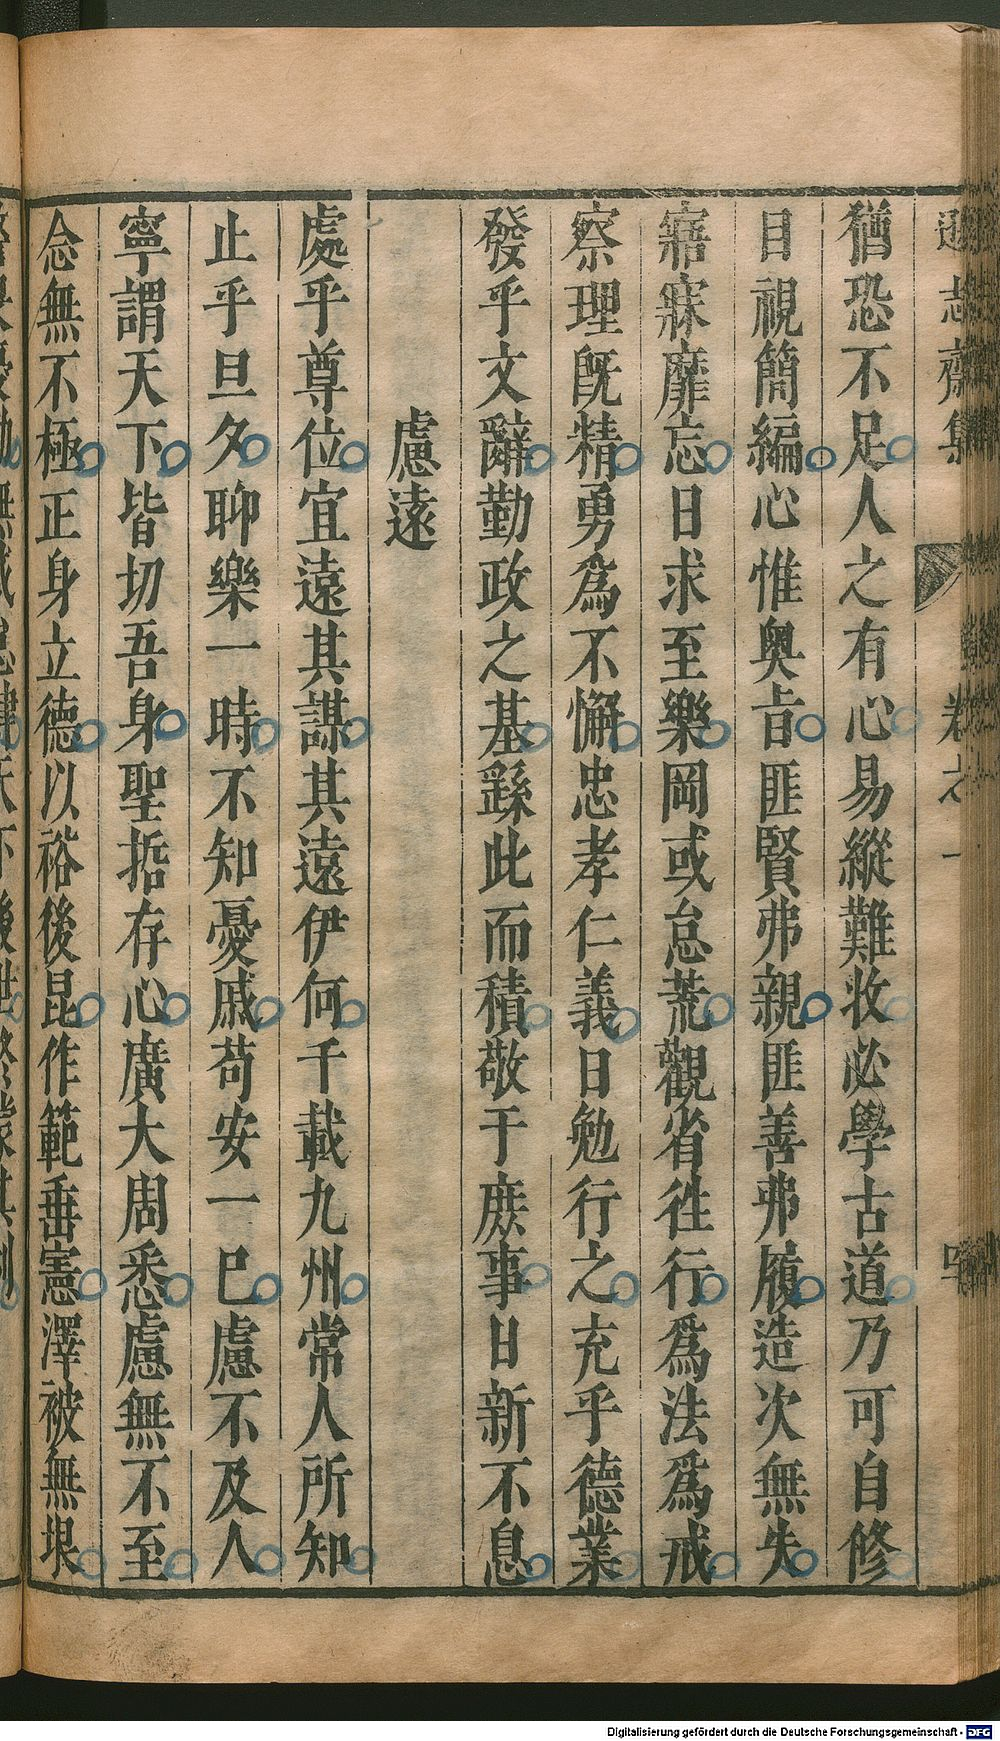 遜志齋集 卷之一
猶恐不足人之有心易縱難收必學古道乃可自修
目視簡編心惟奥㫖匪賢弗親匪善弗履造次無失
寤寐靡忘日求至樂罔或怠荒觀省徃行爲法爲戒
察理旣精勇爲不懈忠孝仁義日勉行之充乎德業
發乎文辭勤政之基繇此而積敬于庶事日新不息
慮遠
處乎尊位宜遠其謀其遠伊何千載九州常人所知
止乎旦夕聊樂一時不知憂戚苟安一巳慮不及人
寧謂天下皆切吾身聖哲存心廣大周悉慮無不至
念無不極正身立德以裕後昆作範垂憲澤被無垠
Digitalisierung gefördert durch die Deutsche Forschungsgemeinschaft - DFG